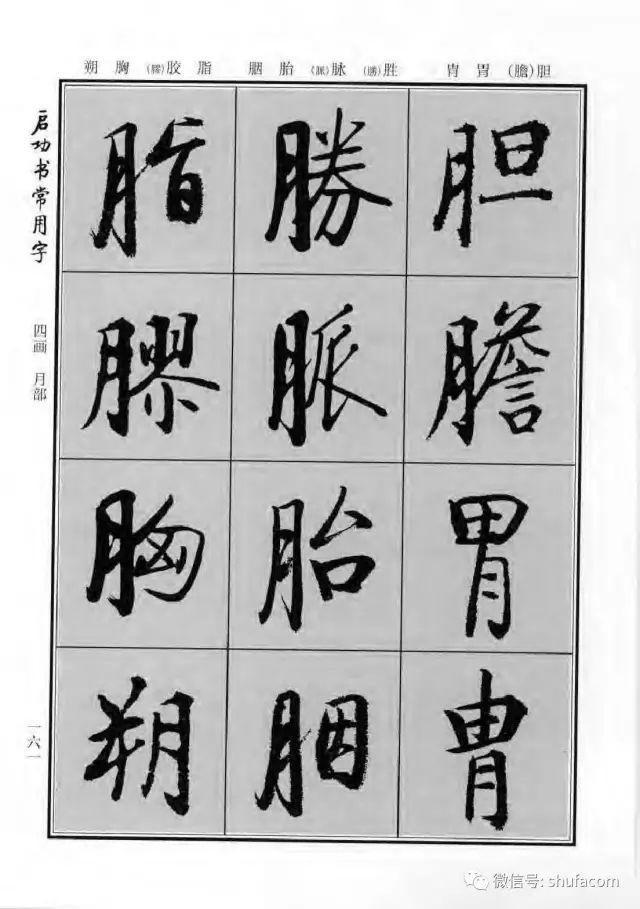 胆(膽) 胃 胄 胜(勝) 脉(脈) 胎 胭 脂 胶(膠) 胸 朔
胆 膽 胃 胄
勝 脈 胎 胭
脂 膠 胸 朔
启功书常用字
四画 月部
一六一
微信号: shufacom